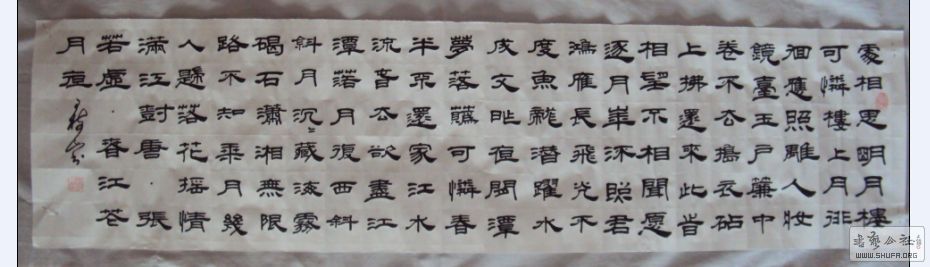 處相思明月樓
可憐樓上月徘
徊應照離人妝
鏡臺玉戶簾中
卷不去擣衣砧
上拂還來此旹
相望不相聞愿
逐月華流照君
鴻雁長飛光不
度魚龍潛躍水
成文昨夜閒潭
夢落蘤可憐春
半不還家江水
流春去欲盡江
潭落月復西斜
斜月沉〻藏海霧
碣石瀟湘無限
路不知乘月幾
人歸落花搖情
滿江樹唐張
若虛 春江花
月夜
書藝公社
WWW.SHUFA.ORG